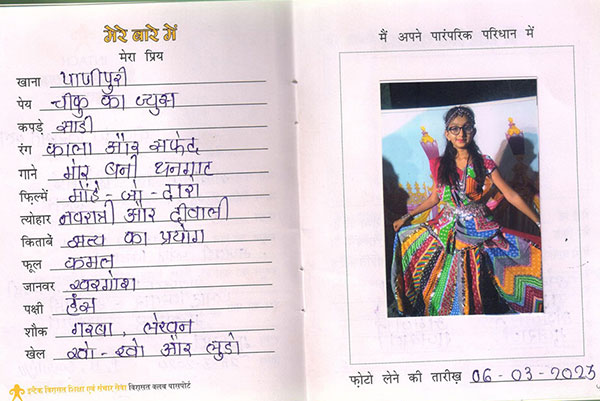 मेरे बारे में
मेरा प्रिय
खाना पाणीपुरी
पेय चीकु का ज्युस
कपड़े साडी
रंग काला और सफेद
गाने मोर बनी थनगाट
फ़िल्में - जो - दारो
त्योहार नवरात्री और दीवाली
किताबें सत्य का प्रयोग
फूल कमल
जानवर खरगोश
पक्षी हंस
शौक गरबा, लेखन
खेल खो - खो और लुडो
इन्टैक विरासत शिक्षा एवं संचार सेवा विरासत क्लब पासपोर्ट
मैं अपने पारंपरिक परिधान में
फ़ोटो लेने की तारीख़ 06-03-2023